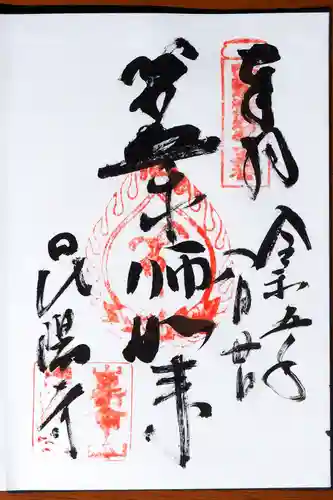 奉拝
令和五年
八月廿日
薬師如来
昆陽寺